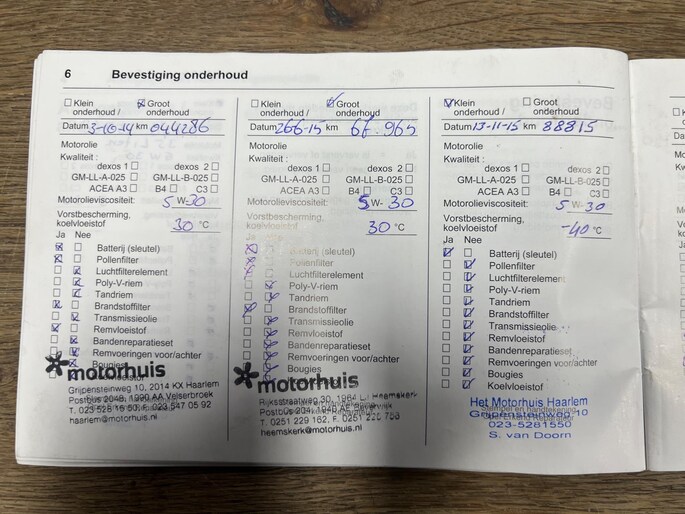 6 Bevestiging onderhoud
Klein onderhoud / Groot onderhoud
Datum 3-10-14 km 044286
Motorolie
Kwaliteit :
dexos 1 dexos 2
GM-LL-A-025 GM-LL-B-025
ACEA A3 B4 C3
Motorolieviscositeit: 5 W-30
Vorstbescherming,
koelvloeistof 30 °C
Ja Nee
Batterij (sleutel)
Pollenfilter
Luchtfilterelement
Poly-V-riem
Tandriem
Brandstoffilter
Transmissieolie
Remvloeistof
Bandenreparatieset
Remvoeringen voor/achter
Bougies
motorhuis
Gripensteinweg 10, 2014 KX Haarlem
haarlem@motorhuis.nl
Klein onderhoud / Groot onderhoud
Datum 266-15 km 66.965
Motorolie
Kwaliteit :
dexos 1 dexos 2
GM-LL-A-025 GM-LL-B-025
ACEA A3 B4 C3
Motorolieviscositeit: 5 W-30
Vorstbescherming,
koelvloeistof 30 °C
Ja Nee
Batterij (sleutel)
Pollenfilter
Luchtfilterelement
Poly-V-riem
Tandriem
Brandstoffilter
Transmissieolie
Remvloeistof
Bandenreparatieset
Remvoeringen voor/achter
Bougies
motorhuis
heemskerk@motorhuis.nl
Klein onderhoud / Groot onderhoud
Datum 13-11-15 km 88815
Motorolie
Kwaliteit :
dexos 1 dexos 2
GM-LL-A-025 GM-LL-B-025
ACEA A3 B4 C3
Motorolieviscositeit: 5 W-30
Vorstbescherming,
koelvloeistof -40 °C
Ja Nee
Batterij (sleutel)
Pollenfilter
Luchtfilterelement
Poly-V-riem
Tandriem
Brandstoffilter
Transmissieolie
Remvloeistof
Bandenreparatieset
Remvoeringen voor/achter
Bougies
Koelvloeistof
Het Motorhuis Haarlem
Gripensteinweg 10
023-5281550
S. van Doorn